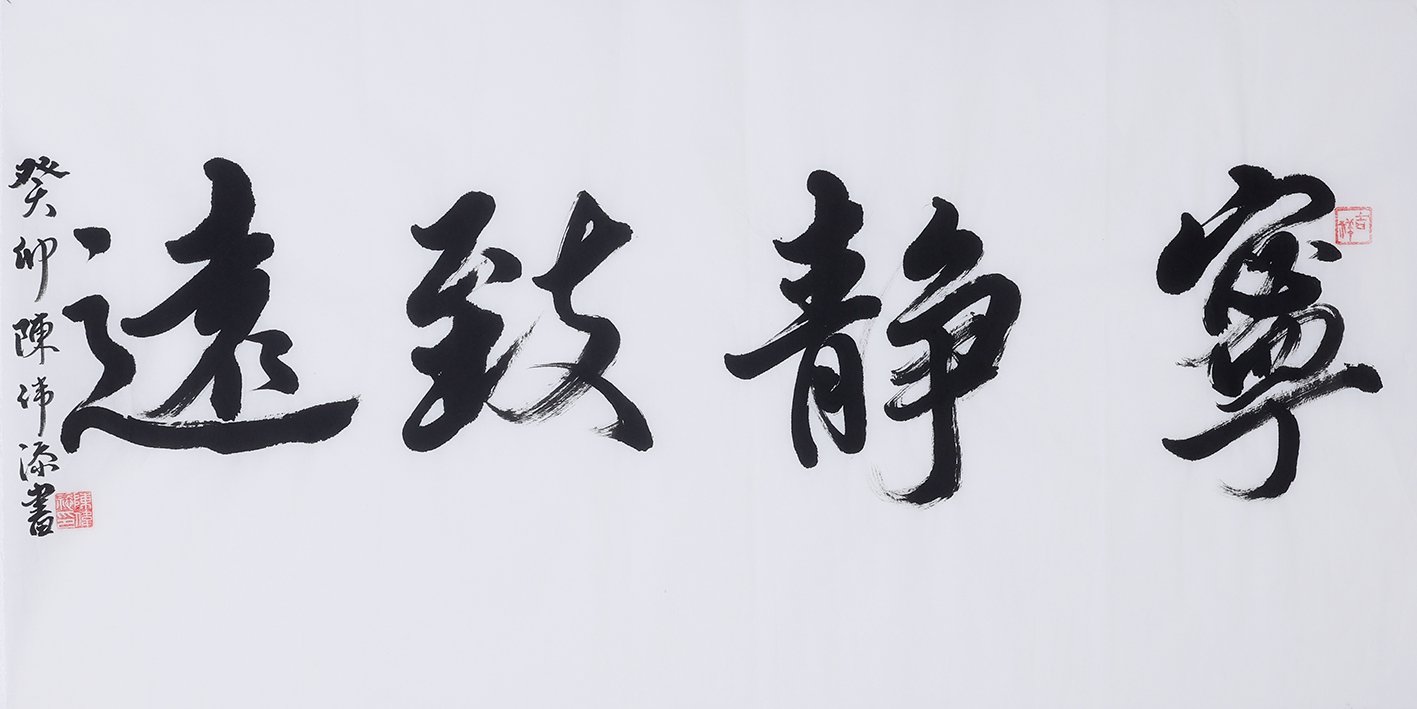 寧靜致遠
癸卯陳偉添書
吉祥
陳偉添印